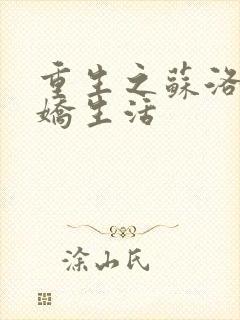 重生之蘇洛
嬌生活
涂山氏